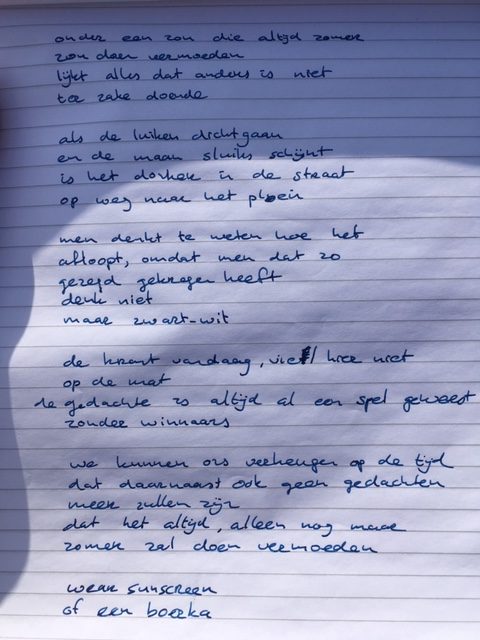 onder een zon die altijd zomer
zou doen vermoeden
lijkt alles dat anders is niet
ter zake doende
als de luiken dichtgaan
en de maan sluiks schijnt
is het donker in de straat
op weg naar het plein
men denkt te weten hoe het
afloopt, omdat men dat zo
gezegd gekregen heeft
denk niet
maar zwart-wit
de krant vandaag, viel hier niet
op de mat
de gedachte is altijd al een spel geweest
zonder winnaars
we kunnen ons verheugen op de tijd
dat daarnaast ook geen gedachten
meer zullen zijn
dat het altijd, alleen nog maar
zomer zal doen vermoeden
wear sunscreen
of een boerka